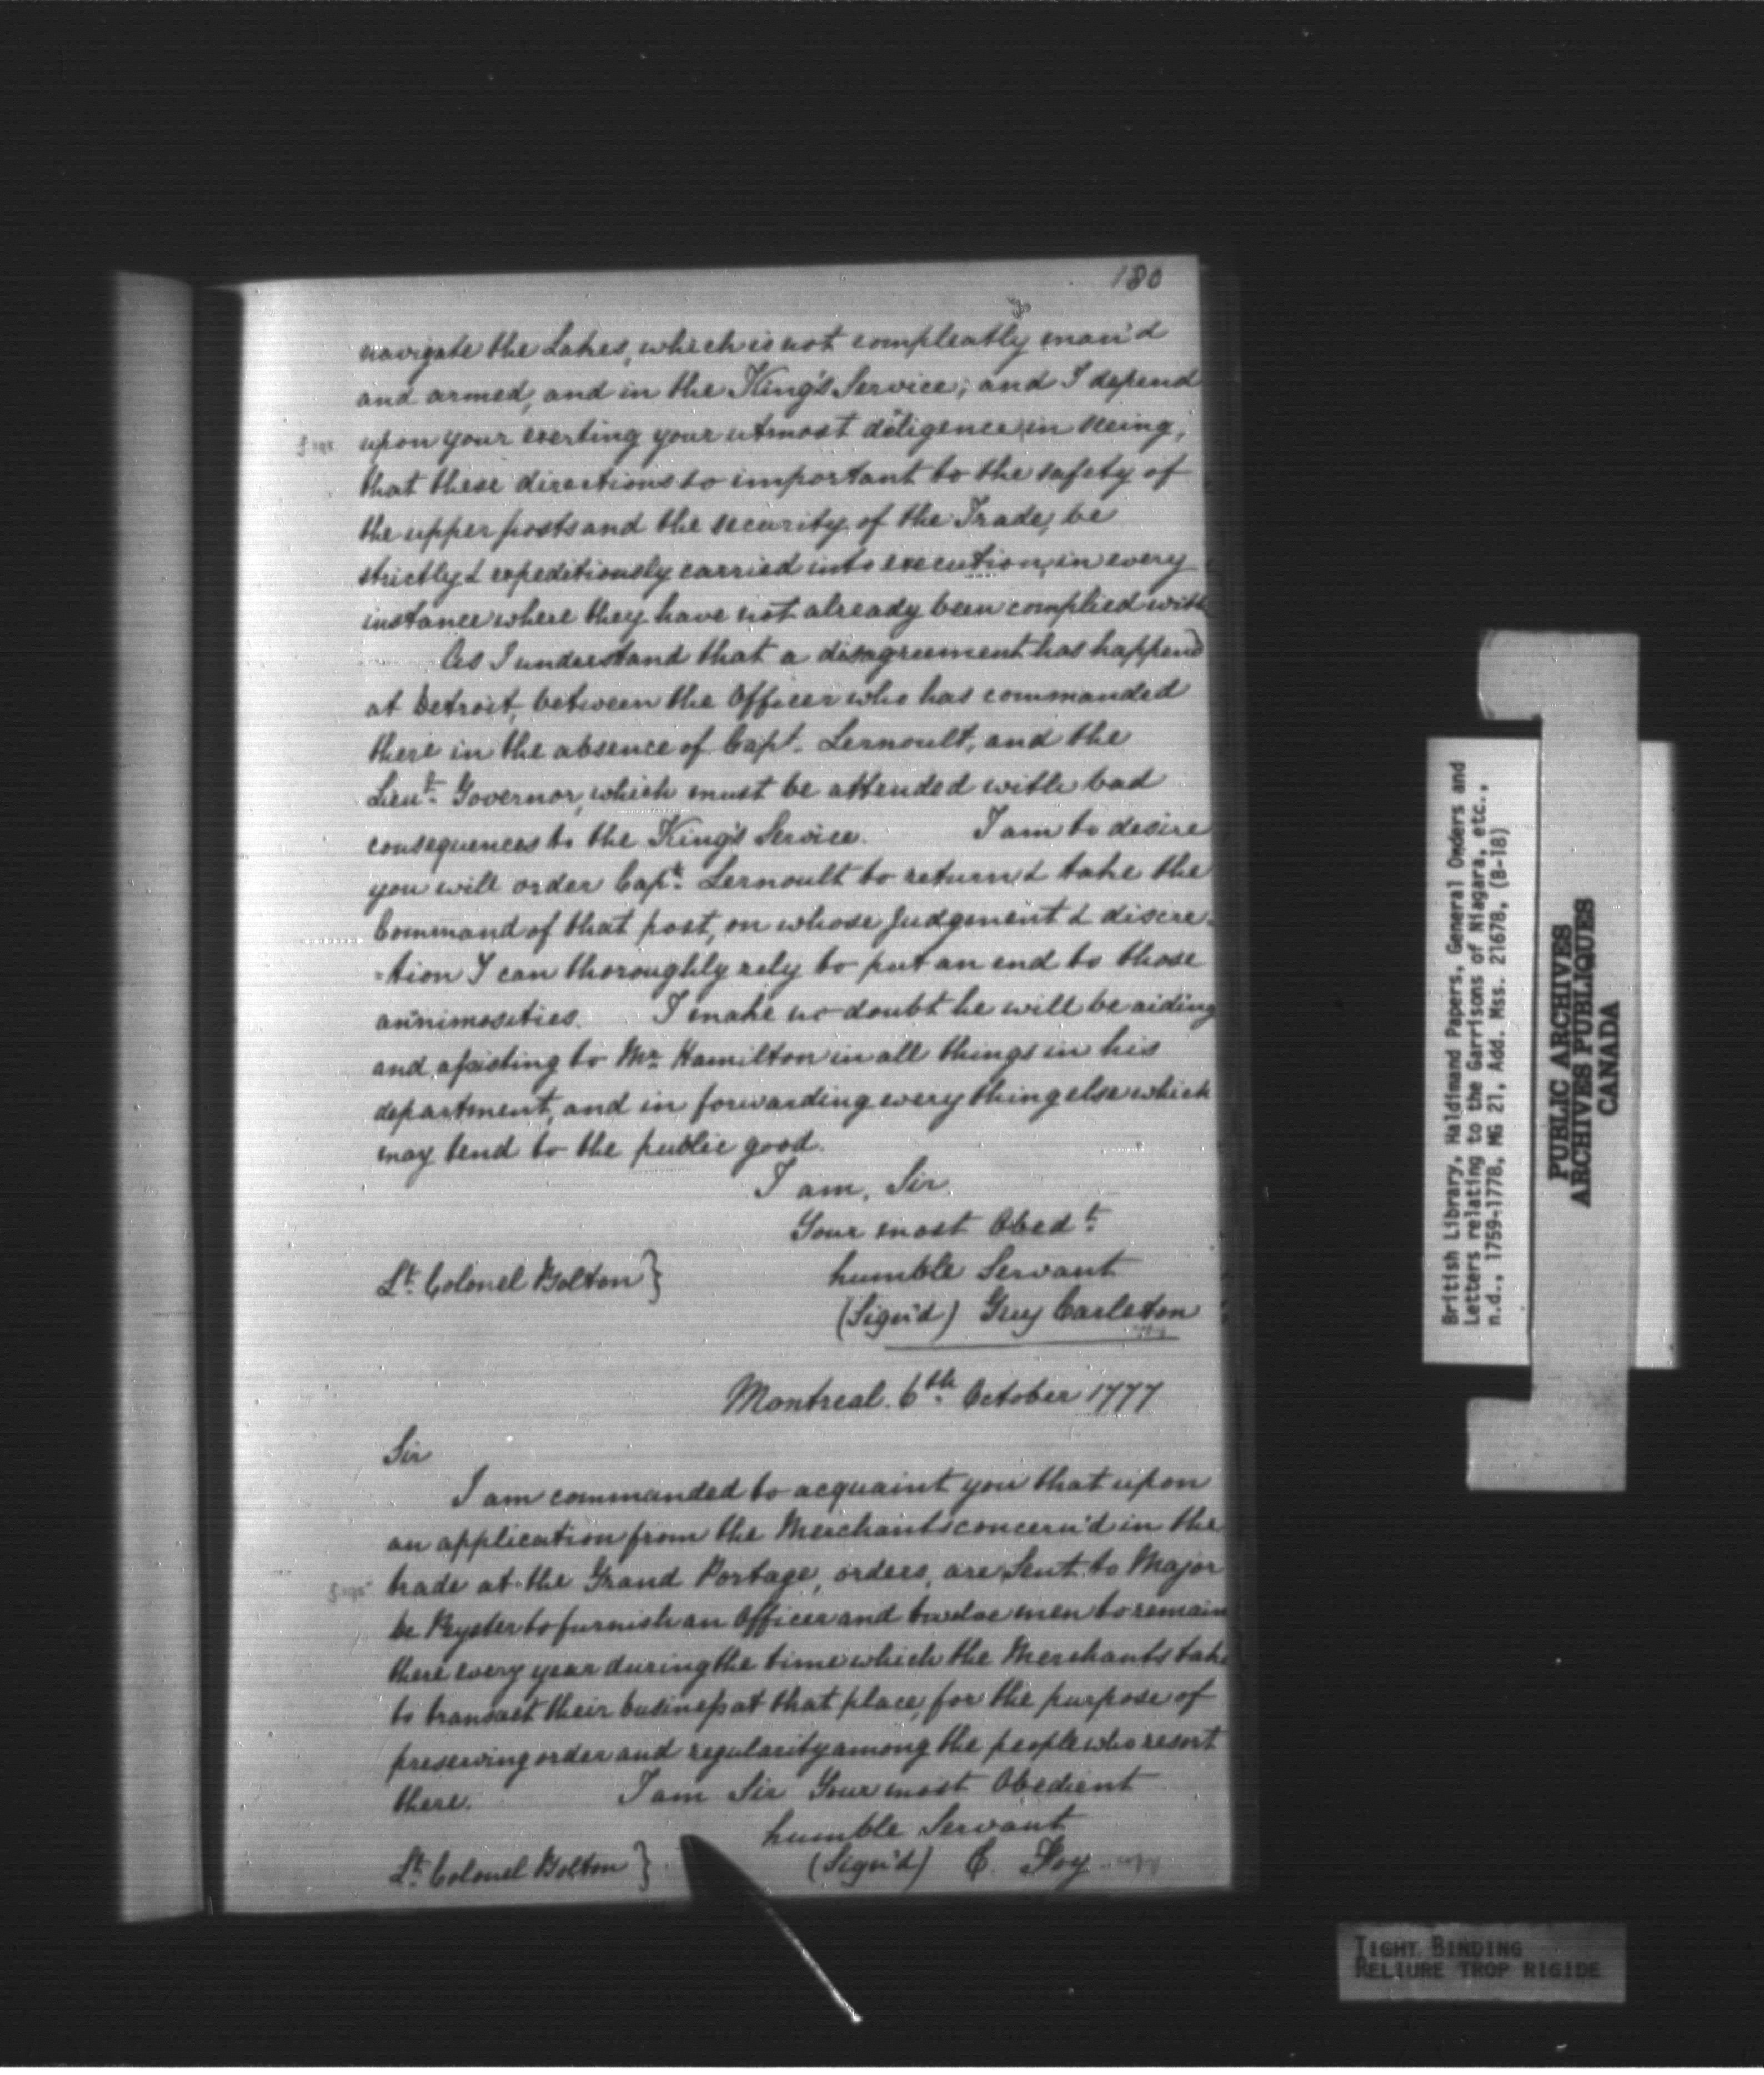 180
navigate the Lakes, which is not compleatly man'd
and armed, and in the King's Service; and I depend
upon your exerting your utmost diligence, in seeing,
that these directions so important to the safety of
the upper posts and the security of the Trade, be
strictly & expeditiously carried into execution, in every
instance where they have not already been complied with
As I understand that a disagreement has happend
at Detroit, between the Officer who has commanded
there in the absence of Capt. Lernoult, and the
Lieut. Governor, which must be attended with bad
consequences to the King's Service. I am to desire
you will order Capt. Lernoult to return & take the
Command of that post, on whose Judgement & discre-
=tion I can thoroughly rely to put an end to those
annimosities. I make no doubt he will be aiding
and assisting to Mr. Hamilton in all things in his
department, and in forwarding every thing else which
may tend to the public good.
I am, Sir
Your most Obedt.
humble Servant
Lt. Colonel Bolton }
(Sign'd) Guy Carleton
copy
Montreal. 6th. October 1777
Sir
I am commanded to acquaint you that upon
an application from the Merchants concern'd in the
trade at the Grand Portage, orders, are Sent to Major
De Peyster to furnish an Officer and twelve men to remain
there every year during the time which the Merchants take
to transact their business at that place, for the purpose of
preserving order and regularity among the people who resort
there. I am Sir Your most Obedient
humble Servant
Lt. Colonel Bolton }
(Sign'd) C. Foy copy
British Library, Haldimand Papers, General Orders and
Letters relating to the Garrisons of Niagara, etc.,
n.d., 1759-1778, MG 21, Add. Mss. 21678, (B-18)
PUBLIC ARCHIVES
ARCHIVES PUBLIQUES
CANADA
TIGHT BINDING
RELIURE TROP RIGIDE